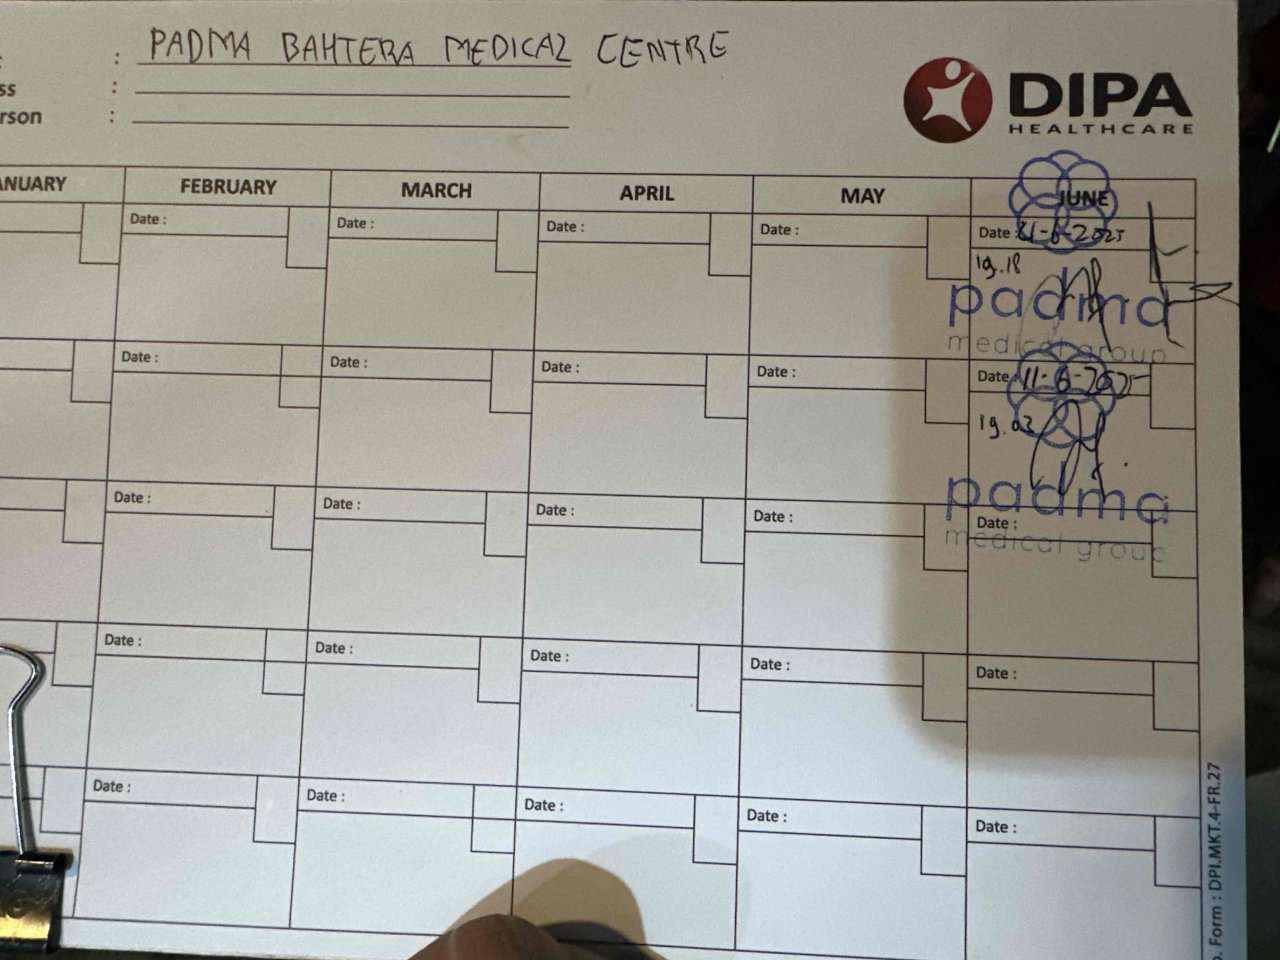 : PADMA BAHTERA MEDICAL CENTRE
ss :
rson :
DIPA
HEALTHCARE
ANUARY FEBRUARY MARCH APRIL MAY JUNE
Date : Date : Date : Date : Date : -6-2025
19.18
padma
medical group
Date : Date : Date : Date : Date : 11-6-2025
19.03
padma
medical group
Date : Date : Date : Date : Date :
Date : Date : Date : Date : Date :
Date : Date : Date : Date : Date :
o. Form : DPI.MKT.4-FR.27